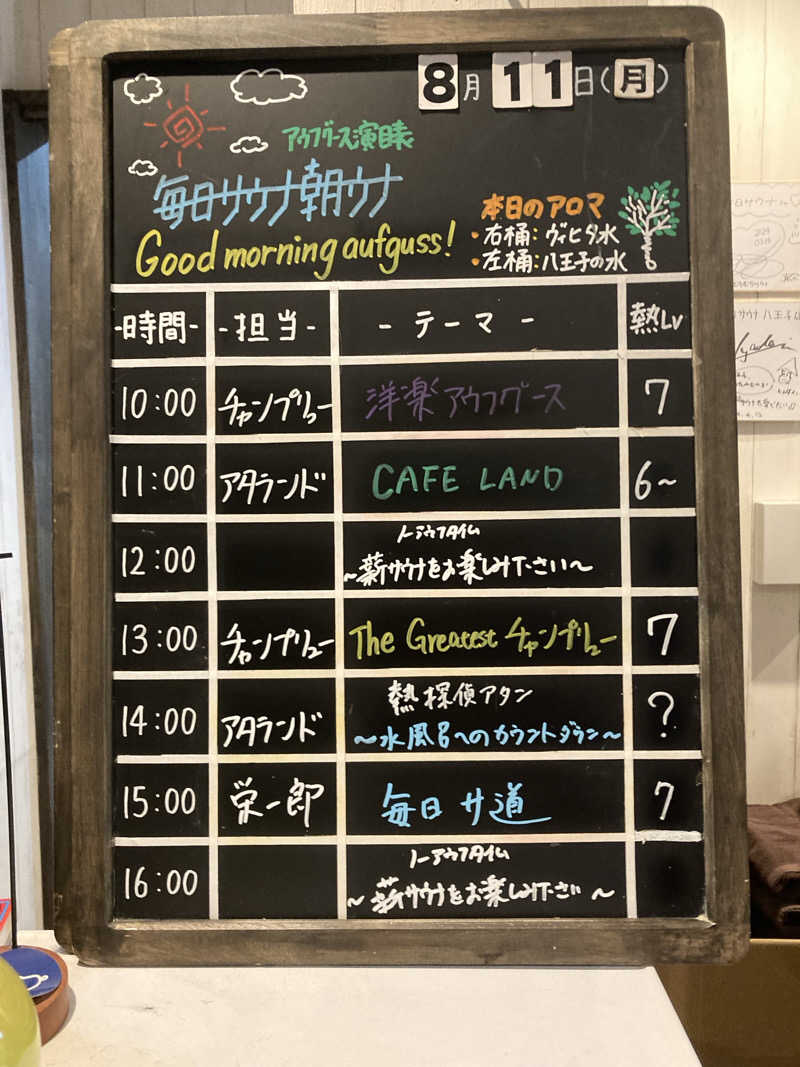 8月11日(月)
アウフグース演目表
毎日サウナ朝ウナ
Good morning aufguss!
本日のアロマ
・右桶：ヴィヒタ水
・左桶：八王子の水
-時間- -担当- -テーマ- 熱Lv
10:00 チャンプリュー 洋楽アウフグース 7
11:00 アタランド CAFE LAND 6~
12:00 ノーアウフタイム
~薪サウナをお楽しみ下さい~
13:00 チャンプリュー The Greatest チャンプリュー 7
14:00 アタランド 熱探偵アタン ?
~水風呂へのカウントダウン~
15:00 栄一郎 毎日サ道 7
16:00 ノーアウフタイム
~薪サウナをお楽しみ下さい~